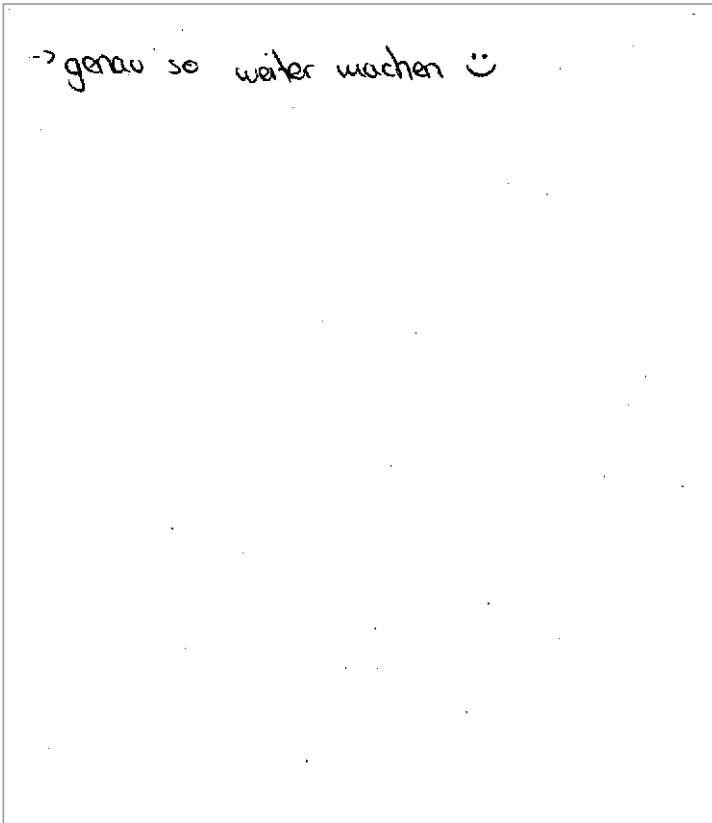 -> genau so weiter machen ☺